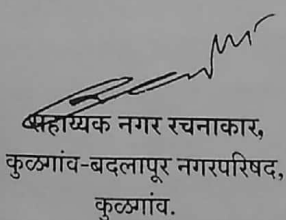 सहाय्यक नगर रचनाकार,
कुळगांव-बदलापूर नगरपरिषद,
कुळगांव.